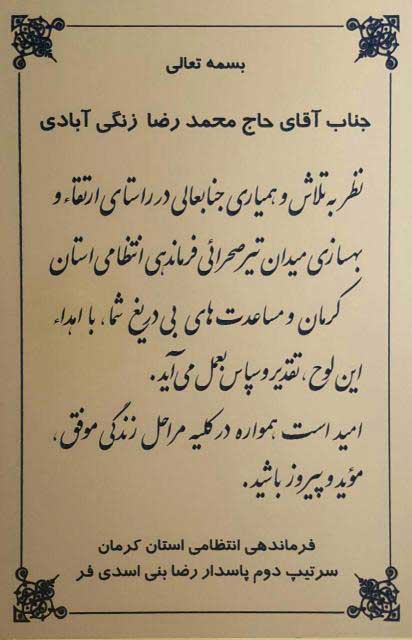 بسمه تعالی
جناب آقای حاج محمد رضا زنگی آبادی
نظر به تلاش و همیاری جنابعالی در راستای ارتقاء و
بهسازی میدان تیر صحرائی فرماندهی انتظامی استان
کرمان و مساعدت های بی دریغ شما، با اهداء
این لوح، تقدیر و سپاس بعمل می آید.
امید است همواره در کلیه مراحل زندگی موفق،
مؤید و پیروز باشید.
فرماندهی انتظامی استان کرمان
سرتیپ دوم پاسدار رضا بنی اسدی فر